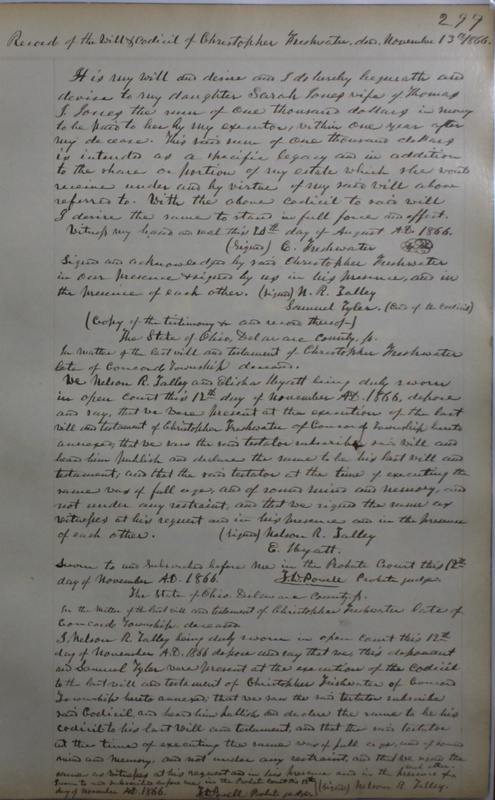 299
Record of the Will & Codicil of Christopher Freshwater, dec. November 13th 1866.
It is my will and desire and I do hereby bequeath and
devise to my daughter Sarah Jones wife of Thomas
J. Jones the sum of One thousand dollars in money
to be paid to her by my executor, within One year after
my decease. This said sum of one thousand dollars
is intended as a specific legacy and in addition
to the share or portion of my estate which she would
receive under and by virtue of my said will above
referred to. With the above codicil to said will
I desire the same to stand in full force and effect.
Witness my hand and seal this day of August A.D. 1866.
(Signed) C. Freshwater
Signed and acknowledged by said Christopher Freshwater
in our presence & signed by us in his presence, and in
the presence of each other. (Signed) N. R. Talley
Samuel Tyler. (End of the Codicil)
(Copy of the testimony & and record thereof)
The State of Ohio, Delaware County, ss.
In matter of the last will and testament of Christopher Freshwater
late of Concord Township deceased.
We Nelson R. Talley and Elisha Hyatt being duly sworn
in open court this 12th day of November A.D. 1866, depose
and say, that we were present at the execution of the last
will and testament of Christopher Freshwater of Concord Township hereto
annexed; that we saw the said testator subscribe said will and
heard him publish and declare the same to be his last will and
testament; and that the said testator at the time of executing the
same was of full age, and of sound mind and memory, and
not under any restraint, and that we signed the same as
witnesses at his request and in his presence and in the presence
of each other. (Signed) Nelson R. Talley
E. Hyatt.
Sworn to and subscribed before me in the Probate Court this 12th
day of November A.D. 1866. Powell Probate judge.
The State of Ohio. Delaware County, ss.
In the matter of the last will and testament of Christopher Freshwater late of
Concord Township deceased.
I, Nelson R. Talley being duly sworn in open court this 12th
day of November A.D. 1866 depose and say that we, this deponent
and Samuel Tyler were present at the execution of the Codicil
to the last will and testament of Christopher Freshwater of Concord
Township hereto annexed; that we saw the said testator subscribe
said Codicil and heard him publish and declare the same to be his
codicil to his last Will and testament, and that the said testator
at the time of executing the same was of full age, and of sound
mind and memory, and not under any restraint, and that we signed the
same as witnesses at his request and in his presence and in the presence of each other.
Sworn to and subscribed before me, in the Probate Court this 12th
day of November A.D. 1866. Powell Probate judge (Signed) Nelson R. Talley